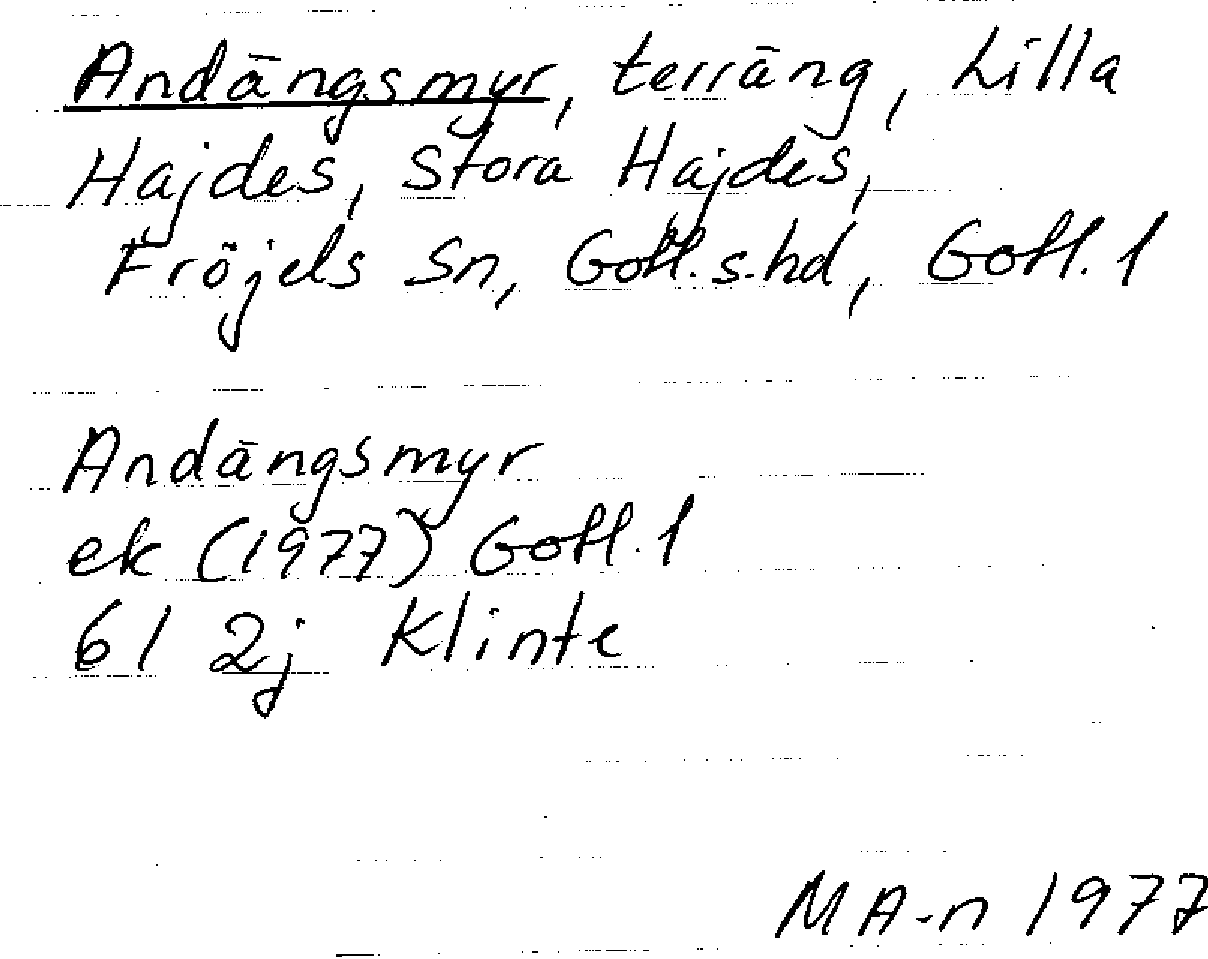 Andängsmyr, terräng, Lilla
Hajdes, Stora Hajdes,
Fröjels sn, Gotl. s. hd, Gotl. l
Andängsmyr
ek (1977) Gotl. l
6I 2j Klinte
MA-n 1977